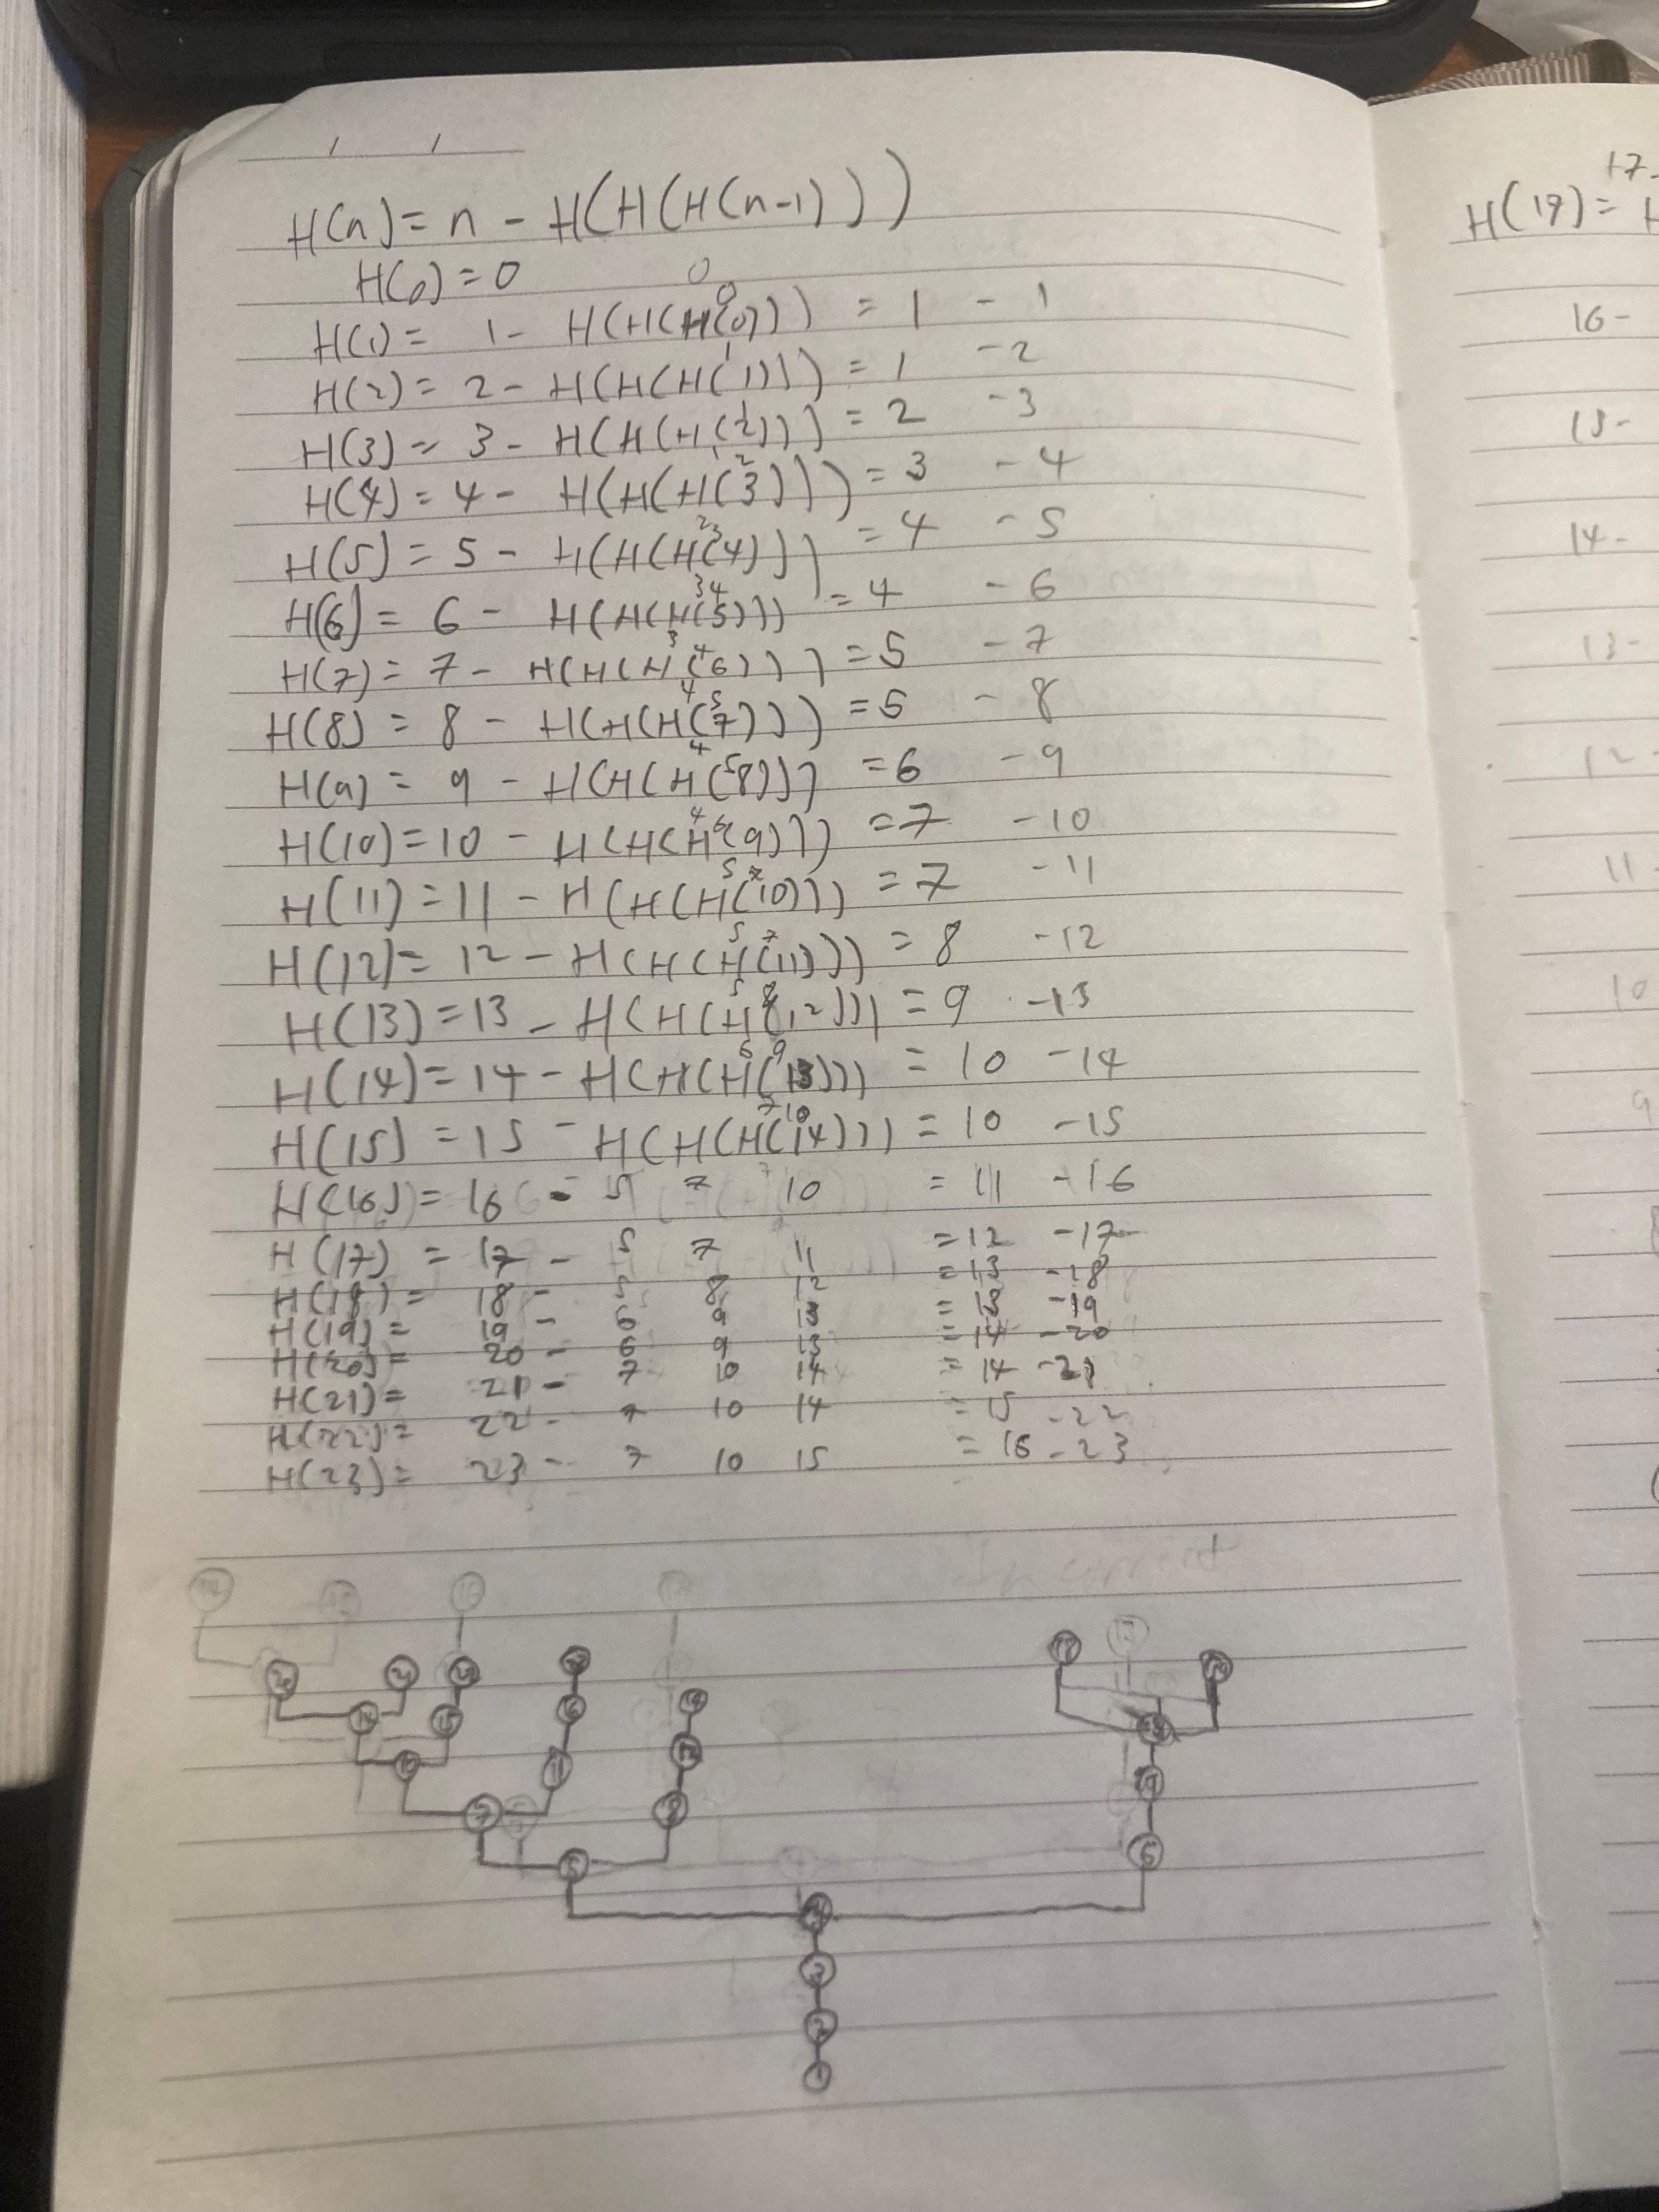 / /
H(n) = n - H(H(H(n-1)))
H(0) = 0
0 0
H(1) = 1 - H(H(H(0))) = 1 - 1
1
H(2) = 2 - H(H(H(1))) = 1 - 2
1
H(3) = 3 - H(H(H(2))) = 2 - 3
1 2
H(4) = 4 - H(H(H(3))) = 3 - 4
2 3
H(5) = 5 - H(H(H(4))) = 4 - 5
3 4
H(6) = 6 - H(H(H(5))) = 4 - 6
3 4
H(7) = 7 - H(H(H(6))) = 5 - 7
4 5
H(8) = 8 - H(H(H(7))) = 5 - 8
4 5
H(9) = 9 - H(H(H(8))) = 6 - 9
4 6
H(10) = 10 - H(H(H(9))) = 7 - 10
5 7
H(11) = 11 - H(H(H(10))) = 7 - 11
5 7
H(12) = 12 - H(H(H(11))) = 8 - 12
5 8
H(13) = 13 - H(H(H(12))) = 9 - 13
6 9
H(14) = 14 - H(H(H(13))) = 10 - 14
7 10
H(15) = 15 - H(H(H(14))) = 10 - 15
H(16) = 16 - 5 7 10 = 11 - 16
H(17) = 17 - 5 7 11 = 12 - 17
H(18) = 18 - 5 8 12 = 13 - 18
H(19) = 19 - 6 9 13 = 13 - 19
H(20) = 20 - 6 9 13 = 14 - 20
H(21) = 21 - 7 10 14 = 14 - 21
H(22) = 22 - 7 10 14 = 15 - 22
H(23) = 23 - 7 10 15 = 16 - 23
Incorrect
20 21
14 15 16
10 11 12
7 8 9
5 6
4
3
2
1
17-
H(19) = H
16-
15-
14-
13-
12-
11-
10
9